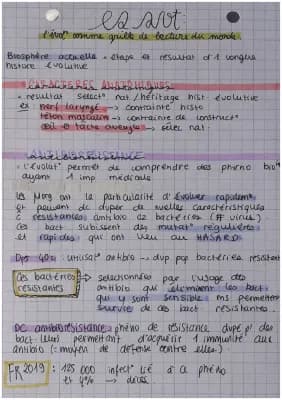 es svt:
l'évol° comme grille de lecture du monde
Biosphère actuelle = étape et résultat d'1 longue
histoire évolutive
CARACTÈRES ANATOMIQUES
= résultat select° nat/héritage hist évolutive
ex nerf laryngé → contrainte histo
téton masculin → contrainte de construct°
œil à tache aveugle → sélec nat.
ANTIBIORESISTANCE
• l'évolut° permet de comprendre des phéno bio
ayant 1 imp médicale
Les µorg ont la particularité d'évoluer rapidemt
et peuvent dvper de nvelles caractéristiques
resistances antibio az bactéries (≠ virus)
Ces bact subissent des mutat° régulières
et rapides qui ont lieu au HASARD
Dps 40s utilisat° antibio → dvp pop bactéries resistant
Ces bactéries → selectionnées par l'usage des
résistantes antibio qui éliminent les bact
qui y sont sensible ms permettent
survie de ces bact resistantes.
DC antibiorésistance = phéno de résistance dvpé p/ des
bact leur permettant d'acquérir 1 immunité aux
antibio (= moyen de défense contre elles)
FR 2019 : 125 000 infect° lié à ce phéno
et 4% → décès